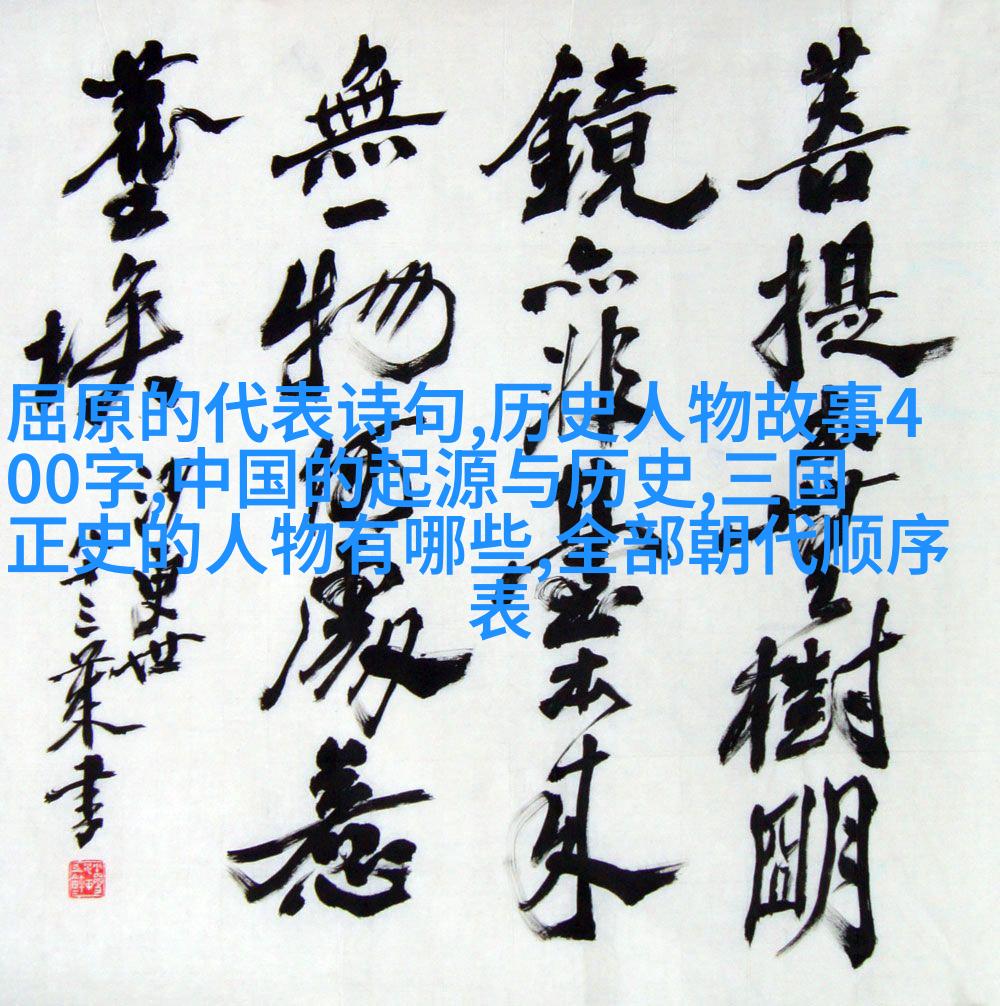 屈原的代表诗句,历史人物故事4
00字,中国的起源与历史,三国
正史的人物有哪些,全部朝代顺序
表
菩提本無樹明
鏡亦非臺本来
無一物何處惹
塵埃
史世
十三葉書